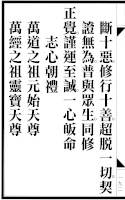 斷十惡修行十善超脱一切契
證無為普與眾生同修
正覺謹運至誠一心皈命
志心朝禮
萬道之祖元始天尊
萬經之祖靈寶天尊